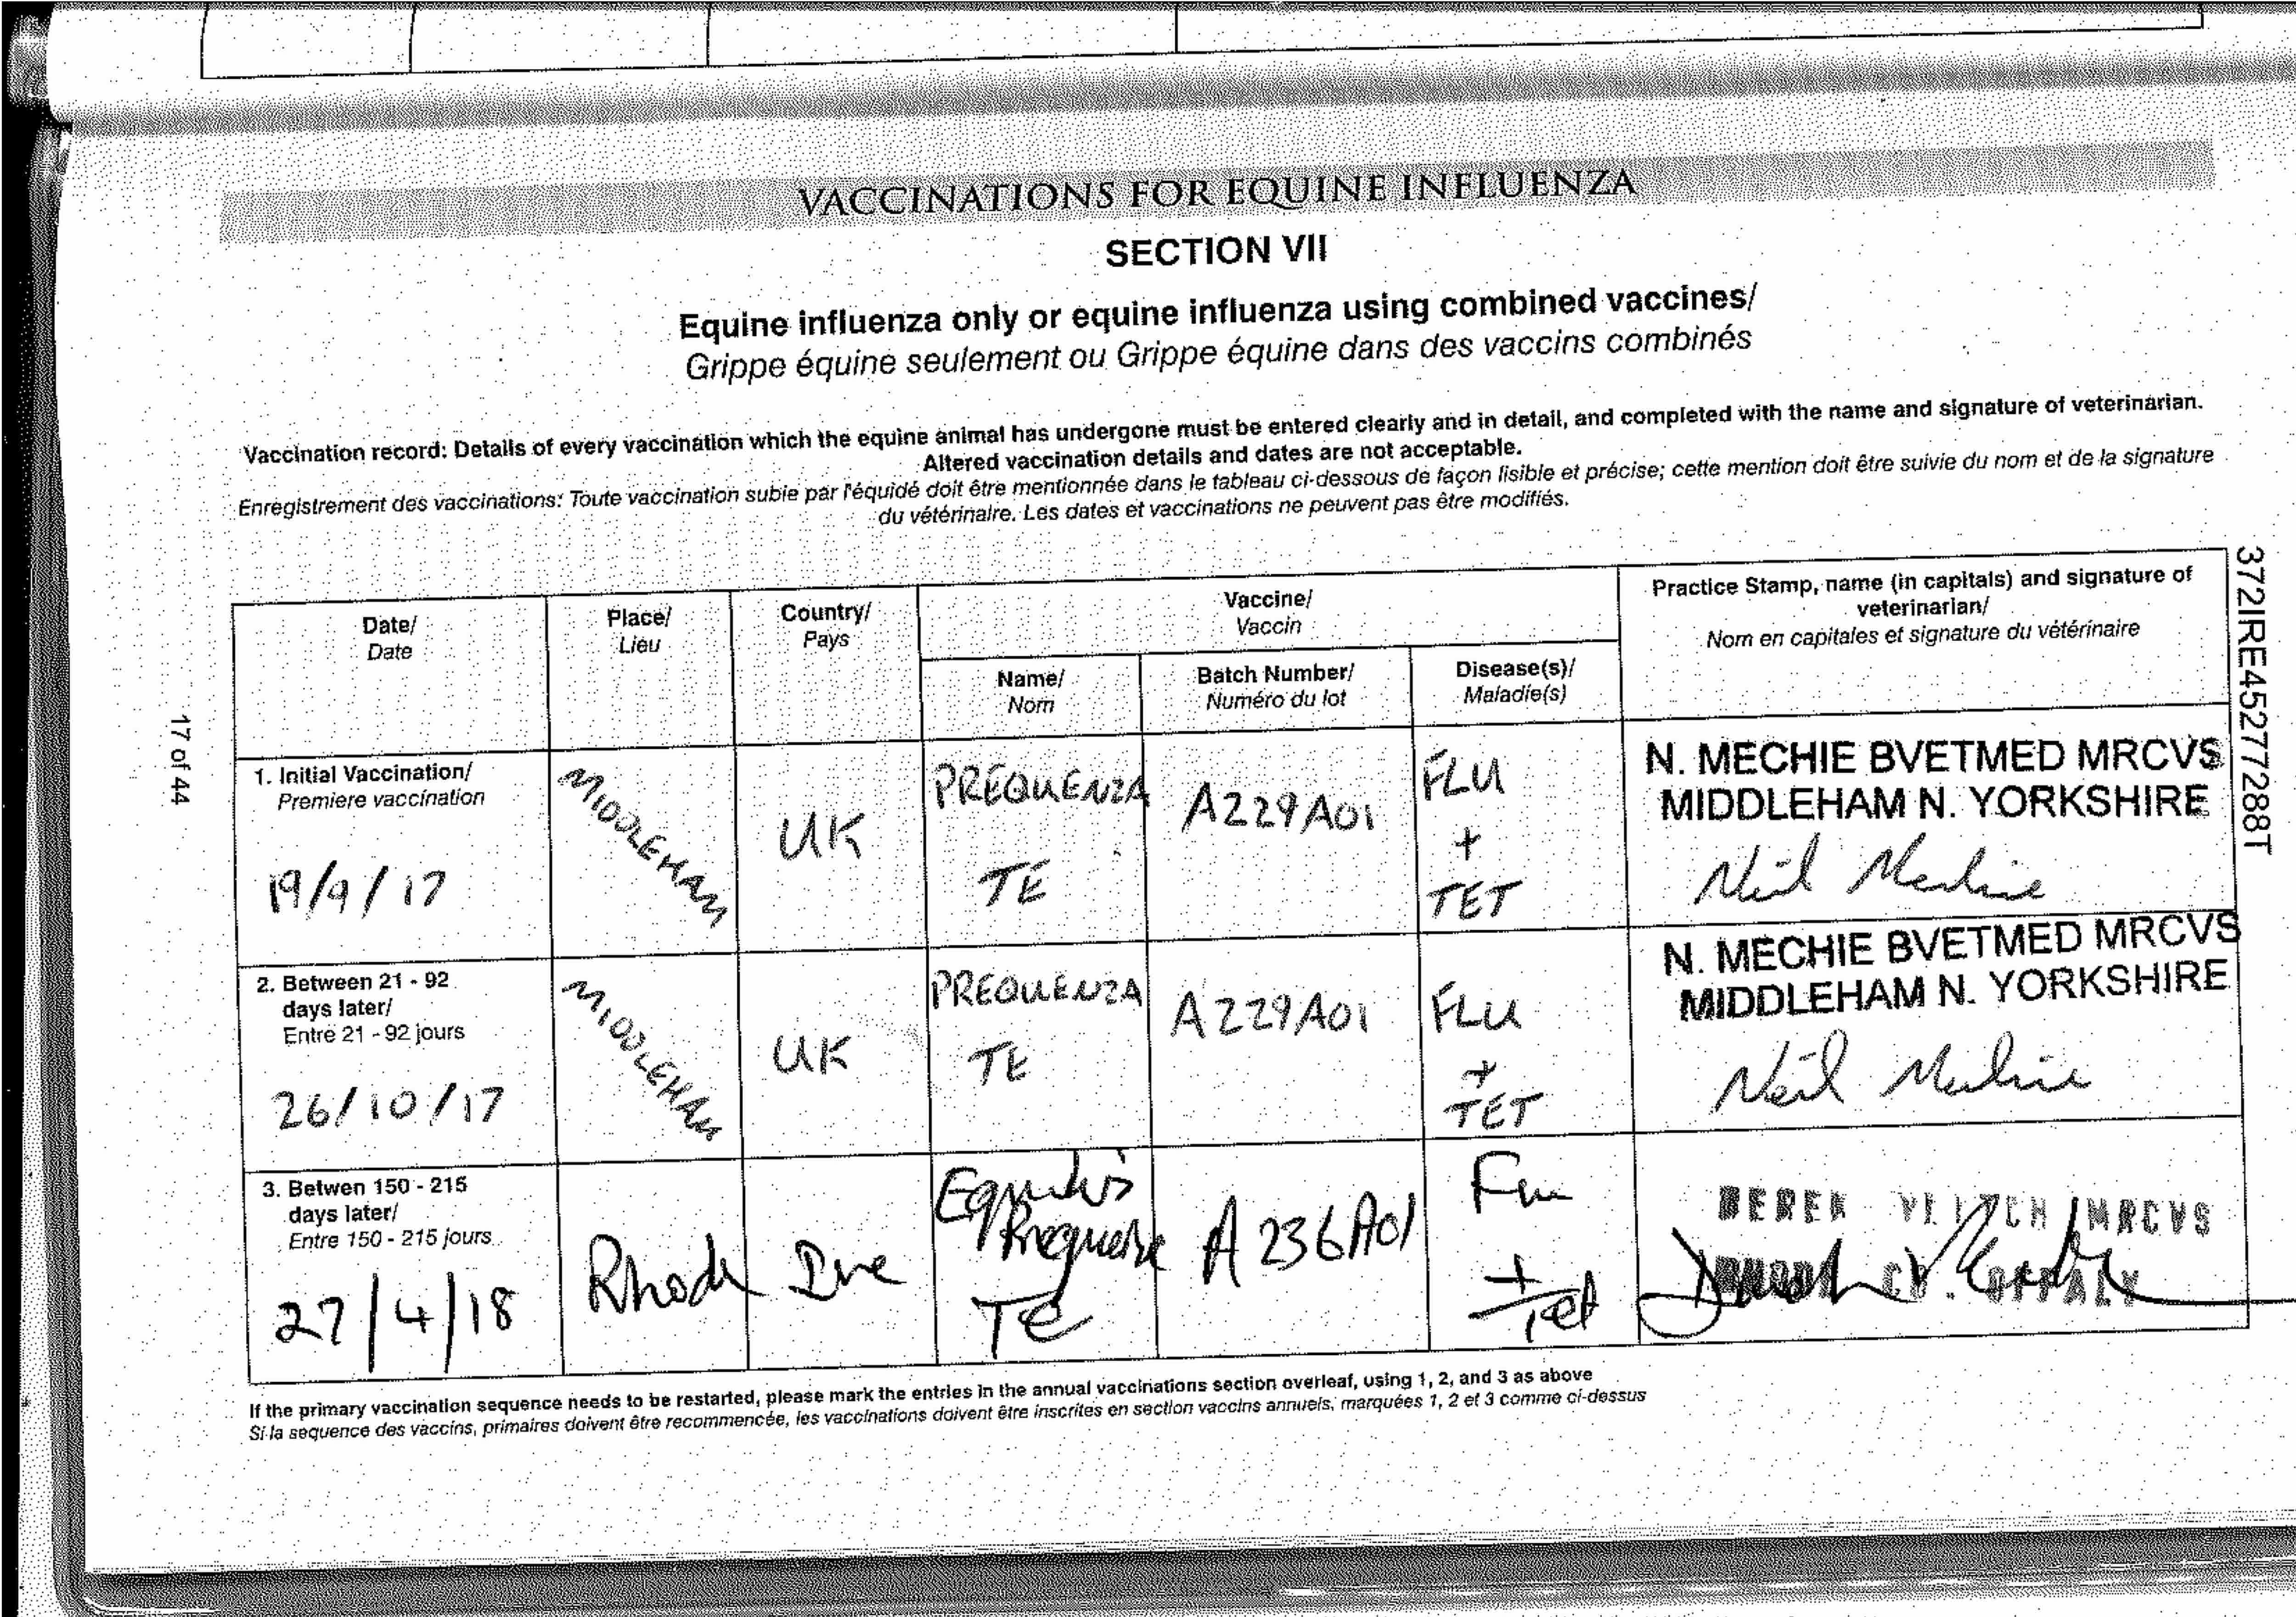 VACCINATIONS FOR EQUINE INFLUENZA
SECTION VII
Equine influenza only or equine influenza using combined vaccines/
Grippe équine seulement ou Grippe équine dans des vaccins combinés
Vaccination record: Details of every vaccination which the equine animal has undergone must be entered clearly and in detail, and completed with the name and signature of veterinarian.
Altered vaccination details and dates are not acceptable.
Enregistrement des vaccinations: Toute vaccination subie par l'équidé doit être mentionnée dans le tableau ci-dessous de façon lisible et précise; cette mention doit être suivie du nom et de la signature
du vétérinaire. Les dates et vaccinations ne peuvent pas être modifiés.
Date/
Date
Place/
Lieu
Country/
Pays
Vaccine/
Vaccin
Name/
Nom
Batch Number/
Numéro du lot
Disease(s)/
Maladie(s)
Practice Stamp, name (in capitals) and signature of
veterinarian/
Nom en capitales et signature du vétérinaire
1. Initial Vaccination/
Premiere vaccination
19/9/17
MIDDLEHAM
UK
PREQUENZA
TE
A229A01
FLU
+
TET
N. MECHIE BVETMED MRCVS
MIDDLEHAM N. YORKSHIRE
Neil Mechie
2. Between 21 - 92
days later/
Entre 21 - 92 jours
26/10/17
MIDDLEHAM
UK
PREQUENZA
TE
A229A01
FLU
+
TET
N. MECHIE BVETMED MRCVS
MIDDLEHAM N. YORKSHIRE
Neil Mechie
3. Betwen 150 - 215
days later/
Entre 150 - 215 jours
27/4/18
Rhode
Ire
Equilis
Prequenza
TE
A236A01
Flu
+
Tet
DEREK VEITCH MRCVS
RHODE CO. OFFALY
If the primary vaccination sequence needs to be restarted, please mark the entries in the annual vaccinations section overleaf, using 1, 2, and 3 as above
Si la sequence des vaccins, primaires doivent être recommencée, les vaccinations doivent être inscrites en section vaccins annuels, marquées 1, 2 et 3 comme ci-dessus
17 of 44
372IRE45277288T